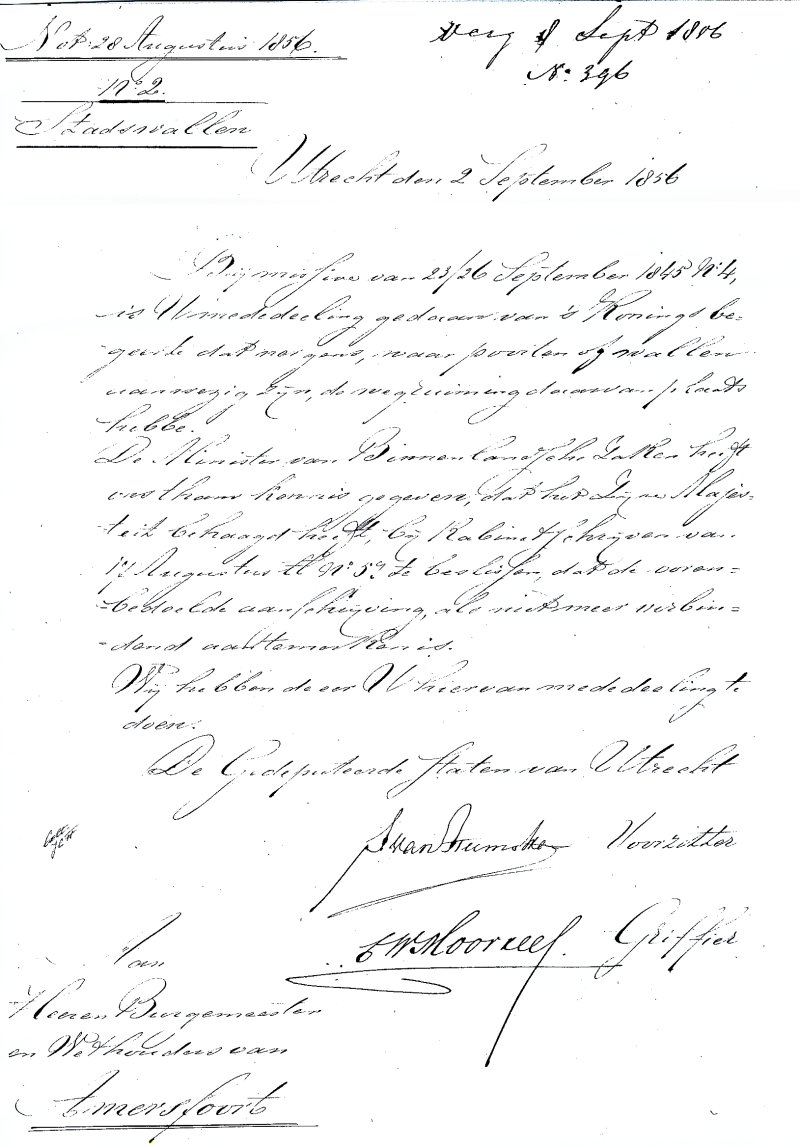 Not. 28 Augustus 1856.
No 2.
Stadswallen
verg 8 Sept 1806
No. 396
Utrecht den 2 September 1856
Bij missive van 23/26 September 1845 No 4,
is U mededeeling gedaan van 's Konings be-
geerte dat nergens, waar poorten of wallen
aanwezig zijn, de wegruiming daarvan plaats
hebbe.
De Minister van Binnenlandsche Zaken heeft
ons thans kennis gegeven, dat het Zijne Majes-
teit behaagd heeft, bij Kabinetschrijven van
17 Augustus ll No 59 te beslissen, dat de voren-
bedoelde aanschrijving, als niet meer verbin-
dend aantemerken is.
Wij hebben de eer U hiervan mededeeling te
doen.
De Gedeputeerde Staten van Utrecht
Voorzitter
Griffier
Aan
Heeren Burgemeester
en Wethouders van
Amersfoort